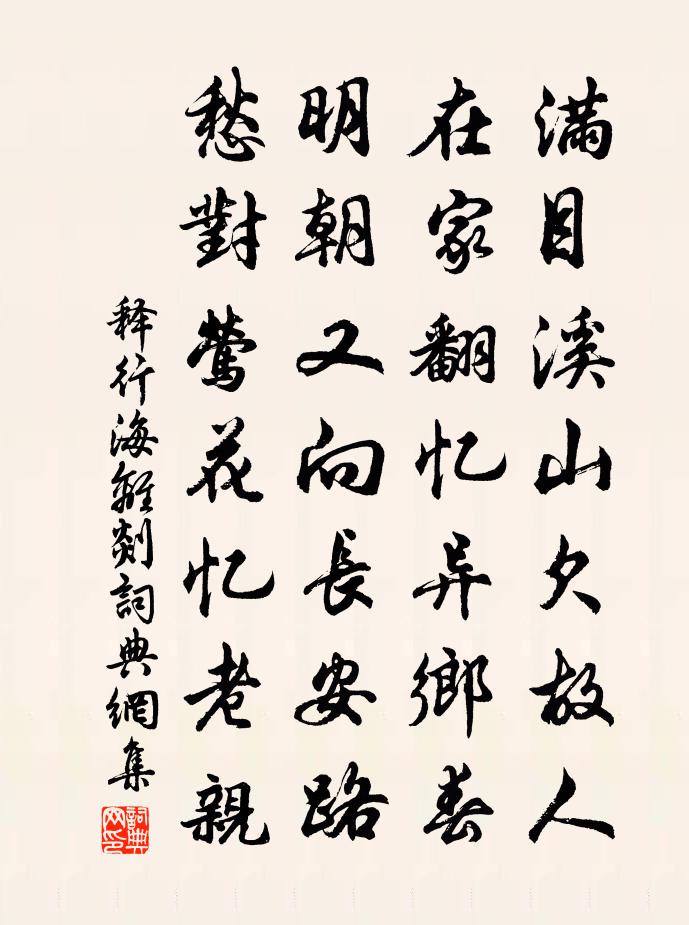 满目溪山欠故人
在家翻忆异鄉春
明朝又向長安路
愁對鶯花忆老親
释行海離剡詞典網集
詞典网印